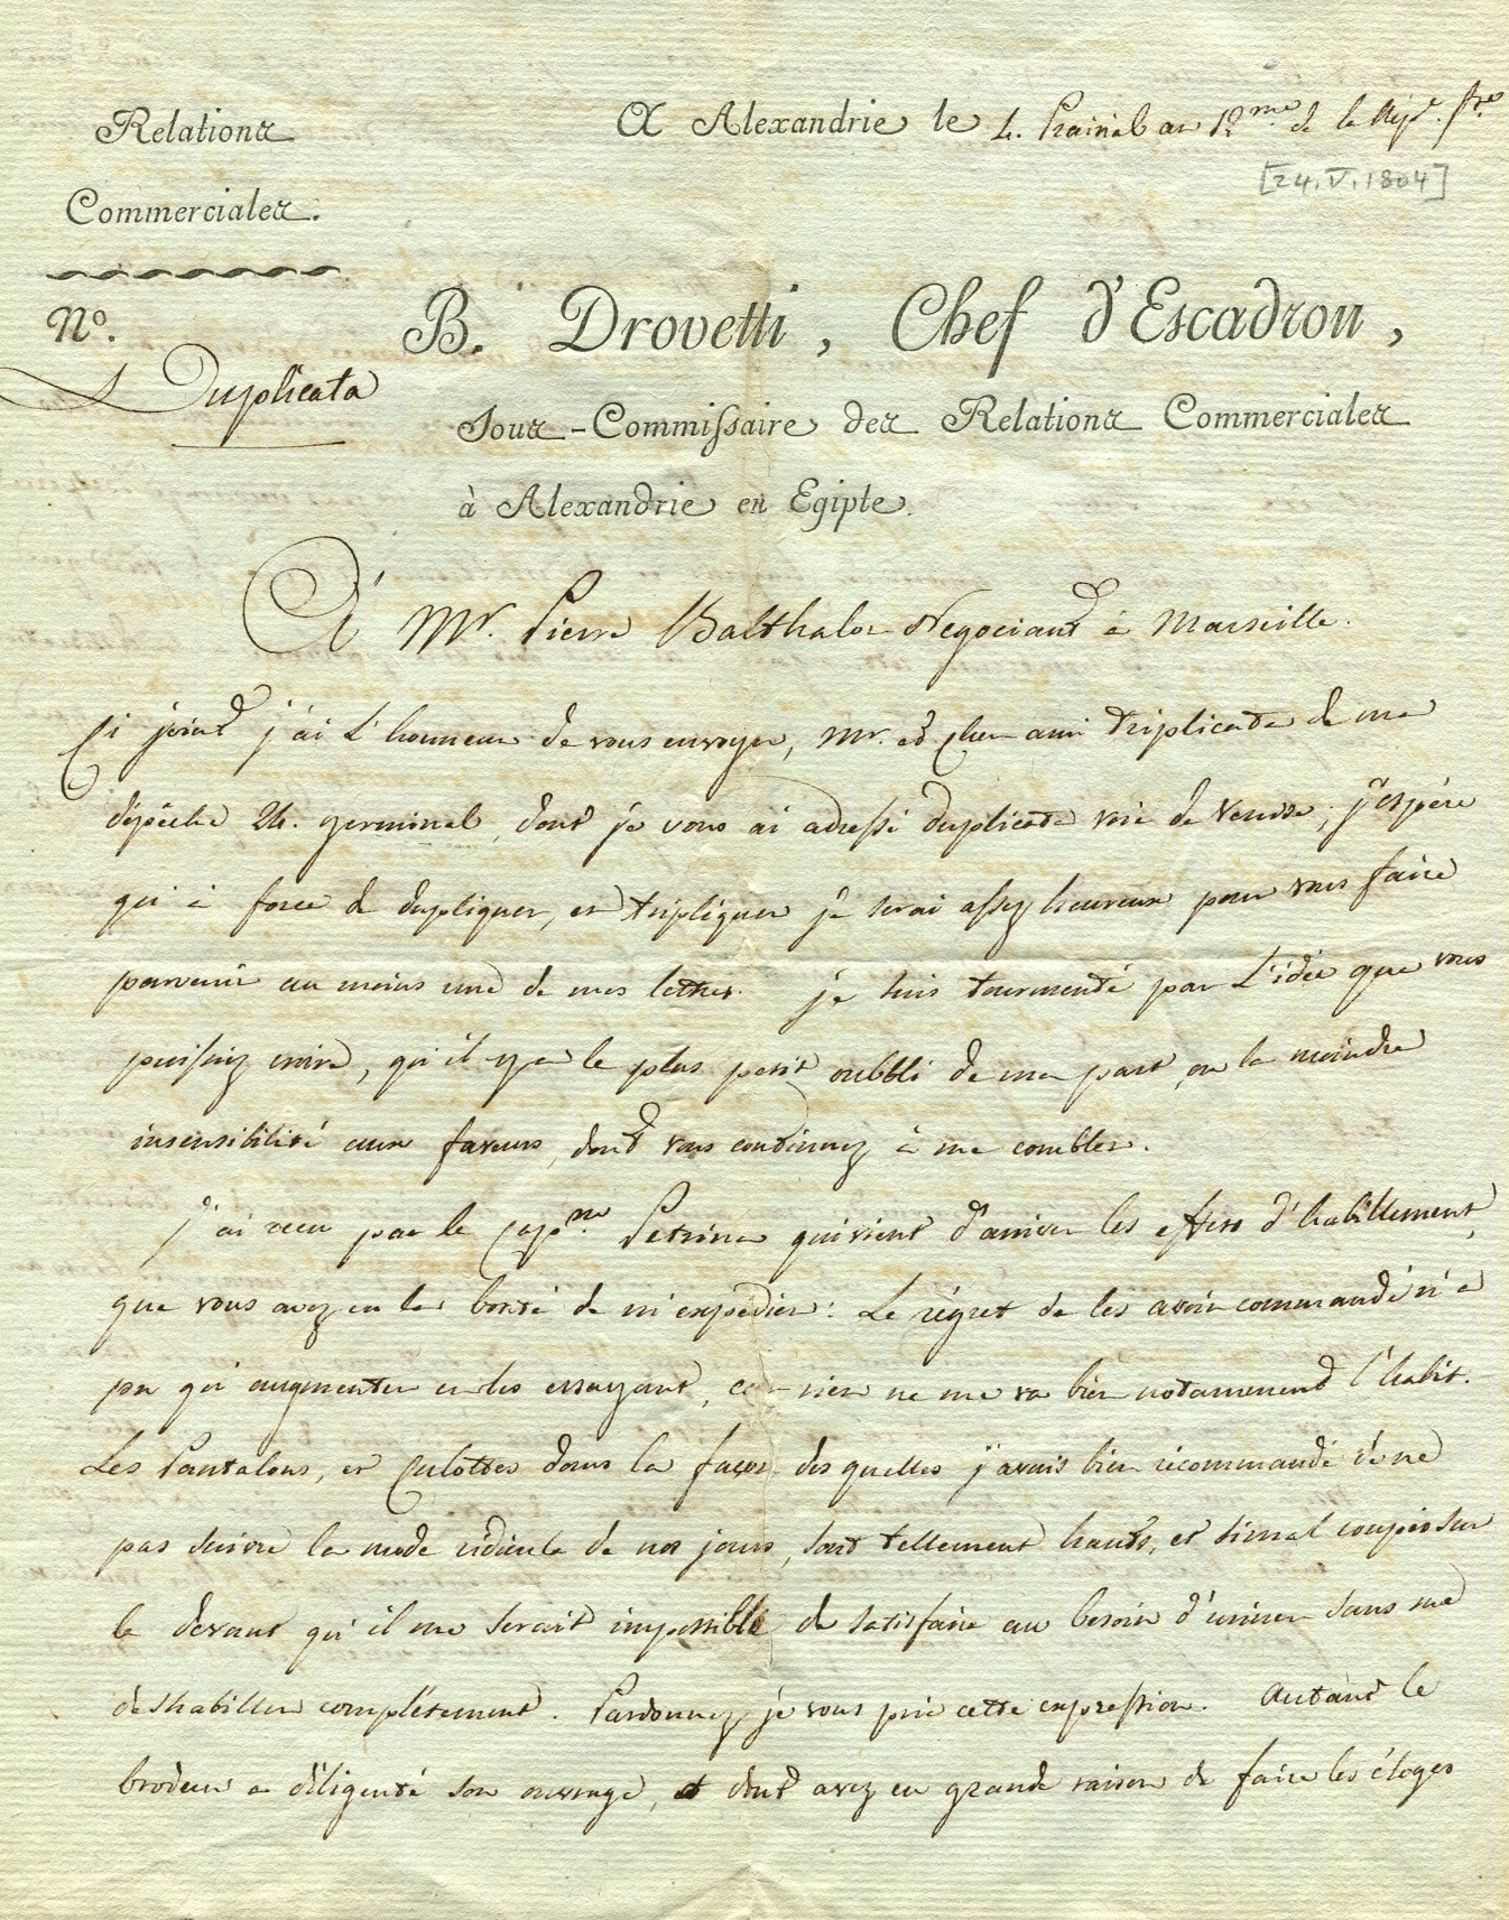 Relations
Commerciales.
A Alexandrie le 4. Prairial an 12.me de la Rép.e fr.se
[24.V.1804]
N.o
Duplicata
B. Drovetti, Chef d'Escadron,
Sous-Commissaire des Relations Commerciales
à Alexandrie en Egipte.
A M.r Pierre Balthalon Negociant à Marseille.
Ci joint j'ai l'honneur de vous envoyer, M.r et cher ami triplicata de ma
dépêche 24. germinal, dont je vous ai adressé duplicata voie de Venise; j'espère
qu'à force de dupliquer, et tripliquer je serai assez heureux pour vous faire
parvenir au moins une de mes lettres. je suis tourmenté par l'idée que vous
puissiez croire, qu'il y a le plus petit oubbli de ma part, ou la moindre
insensibilité aux faveurs, dont vous continuez à me combler.
j'ai reçu par le Cap.ne Petrina qui vient d'arriver les effets d'habillement,
que vous avez eu la bonté de m'expédier: Le régret de les avoir commandé n'a
pu qu'augmenter en les essayant, car rien ne me va bien notamment l'habit.
Les Pantalons, et Culottes dans la façon des quelles j'avais bien récommandé de ne
pas suivre la mode ridicule de nos jours, sont tellement hauts, et si mal coupés sur
le devant qu'il me serait impossible de satisfaire au besoin d'uriner sans me
deshabiller complétement. Pardonnez je vous prie cette expression. Autant le
brodeur a diligenté son ouvrage, et dont avez eu grande raison de faire les éloges